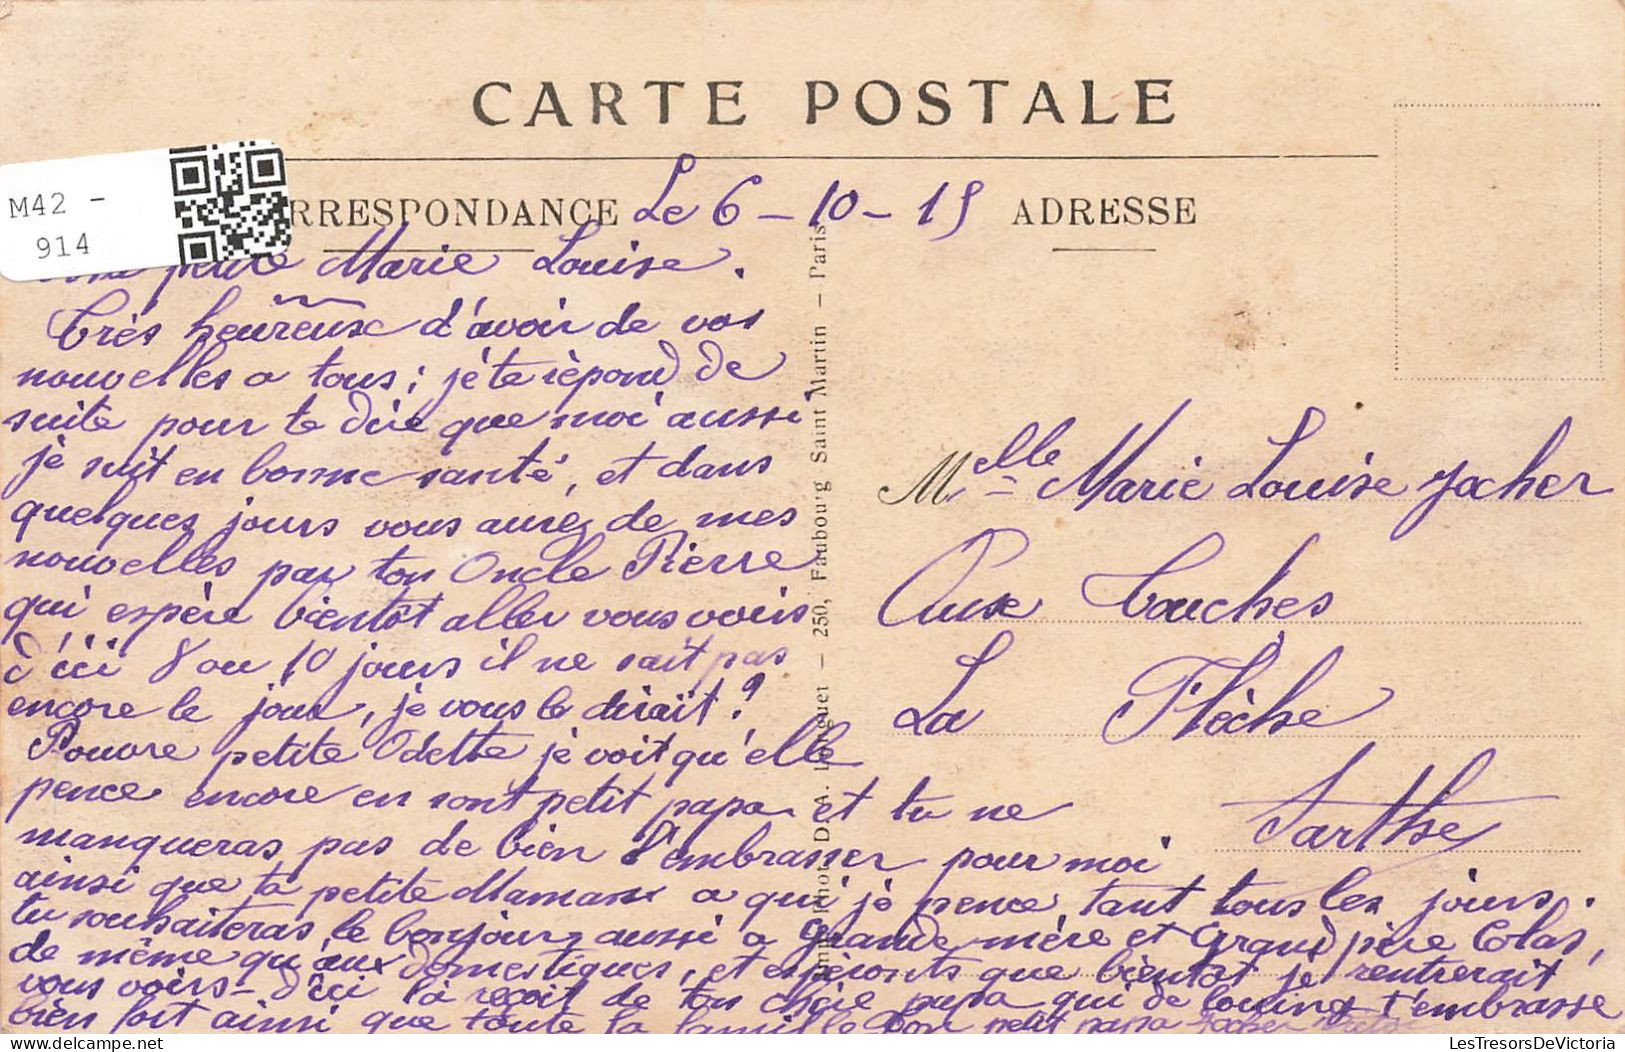 CARTE POSTALE
M42 -
914
RRESPONDANCE
Le 6 - 10 - 15
ADRESSE
petite Marie Louise.
Très heureuse d'avoir de vos
nouvelles a tous; je te répond de
suite pour te dire que moi aussi
je suit en bonne santé, et dans
quelques jours vous aurez de mes
nouvelles par ton Oncle Pierre
qui espère bientôt aller vous voirs
d'ici 8 ou 10 jours il ne sait pas
encore le jour, je vous le dirait?
Pouvre petite Odette je voit qu'elle
pence encore en sont petit papa et tu ne
manqueras pas de bien l'embrasser pour moi
ainsi que ta petite Maman a qui je pence tant tous les jours.
tu souhaiteras le bonjour aussi a Grande mère et Grand père Colas,
de même qu'aux domestiques, et espéronts que bientot je rentrerait
vous voirs - d'ici là reçoit de ton chèie papa qui de louing t'embrasse
bien fort ainsi que toute la famille Ton petit papa Jocher
D. A. Longuet — 250, Faubourg Saint Martin — Paris
Melle Marie Louise Jocher
Aux Touches
La Flèche
Sarthe
LesTresorsDeVictoria